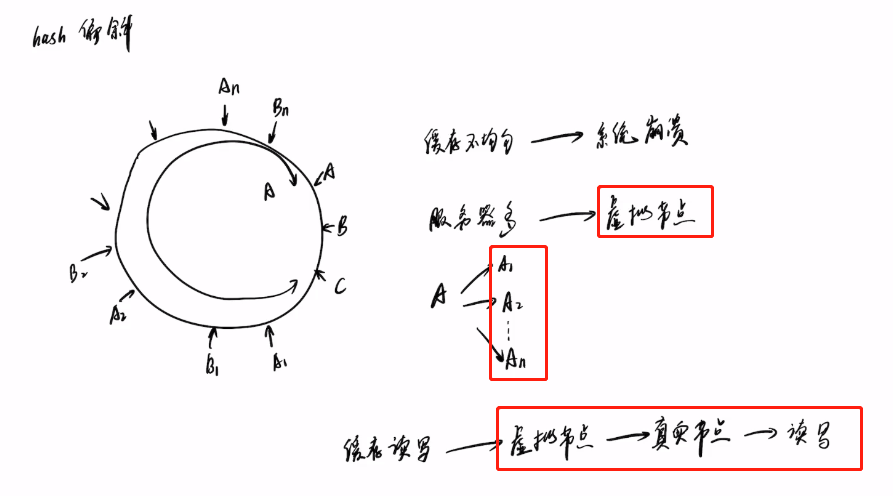 hash 偏斜
An
Bn
A
A
B
B2
C
A2
B1
A1
缓存不均匀 → 系统崩溃
服务器多 → 虚拟节点
A
A1
A2
An
缓存读写 → 虚拟节点 → 真实节点 → 读写